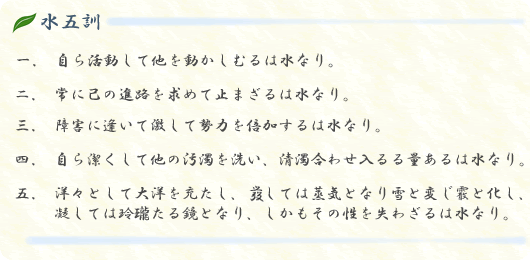 水五訓
一. 自ら活動して他を動かしむるは水なり。
二. 常に己の進路を求めて止まざるは水なり。
三. 障害に逢いて激して勢力を倍加するは水なり。
四. 自ら潔くして他の汚濁を洗い、清濁合わせ入るる量あるは水なり。
五. 洋々として大洋を充たし、発しては蒸気となり雪と変じ霰と化し、
凝しては玲瓏たる鏡となり、しかもその性を失わざるは水なり。